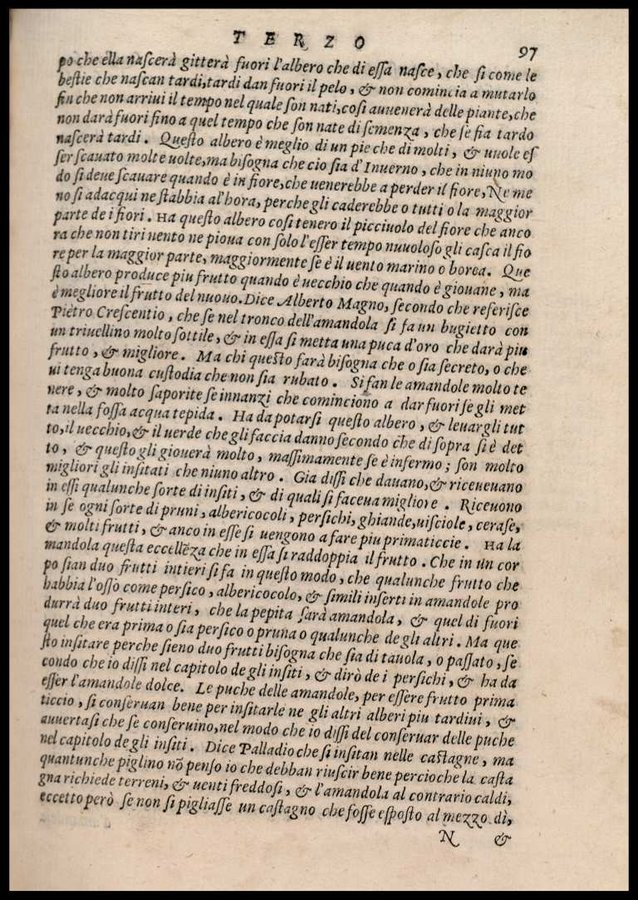 TERZO
97
po che ella nascerà gitterà fuori l'albero che di essa nasce, che si come le
bestie che nascan tardi, tardi dan fuori il pelo, & non comincia a mutarlo
fin che non arriui il tempo nel quale son nati, cosi auuenerà delle piante, che
non darà fuori fino a quel tempo che son nate di semenza, che se fia tardo
nascerà tardi. Questo albero è meglio di un pie che di molti, & uuole es
ser scauato molte uolte, ma bisogna che cio sia d'Inuerno, che in niuno mo
do si deue scauare quando è in fiore, che uenerebbe a perder il fiore, Ne me
no si adacqui ne stabbia al'hora, perche gli caderebbe o tutti o la maggior
parte de i fiori. Ha questo albero cosi tenero il picciuolo del fiore che anco
ra che non tiri uento ne pioua con solo l'esser tempo nuuoloso gli casca il fio
re per la maggior parte, maggiormente se è il uento marino o borea. Que
sto albero produce piu frutto quando è uecchio che quando è giouane, ma
è megliore il frutto del nuouo. Dice Alberto Magno, secondo che referisce
Pietro Crescentio, che se nel tronco dell'amandola si fa un bugietto con
un triuellino molto sottile, & in essa si metta una puca d'oro che darà piu
frutto, & migliore. Ma chi questo farà bisogna che o sia secreto, o che
ui tenga buona custodia che non sia rubato. Si fan le amandole molto te
nere, & molto saporite se innanzi che cominciono a dar fuori se gli met
ta nella fossa acqua tepida. Ha da potarsi questo albero, & leuargli tut
to, il uecchio, & il uerde che gli faccia danno secondo che di sopra si è det
to, & questo gli giouerà molto, massimamente se è infermo; son molto
migliori gli insitati che niuno altro. Gia dissi che dauano, & riceueuano
in essi qualunche sorte di insiti, & di quali si faceua migliore. Riceuono
in se ogni sorte di pruni, albericocoli, persichi, ghiande, uisciole, cerase,
& molti frutti, & anco in esse si uengono a fare piu primaticcie. Ha la
mandola questa eccellẽza che in essa si raddoppia il frutto. Che in un cor
po sian duo frutti intieri si fa in questo modo, che qualunche frutto che
habbia l'osso come persico, albericocolo, & simili inserti in amandole pro
durrà duo frutti interi, che la pepita sarà amandola, & quel di fuori
quel che era prima o sia persico o pruna o qualunche de gli altri. Ma que
sto insitare perche sieno duo frutti bisogna che sia di tauola, o passato, se
condo che io dissi nel capitolo de gli insiti, & dirò de i persichi, & ha da
esser l'amandole dolce. Le puche delle amandole, per essere frutto prima
ticcio, si conseruan bene per insitarle ne gli altri alberi piu tardiui, &
auuertasi che se conseruino, nel modo che io dissi del conseruar delle puche
nel capitolo de gli insiti. Dice Palladio che si insitan nelle castagne, ma
quantunche piglino nõ penso io che debban riuscir bene percioche la casta
gna richiede terreni, & uenti freddosi, & l'amandola al contrario caldi,
eccetto però se non si pigliasse un castagno che fosse esposto al mezzo dì,
N &